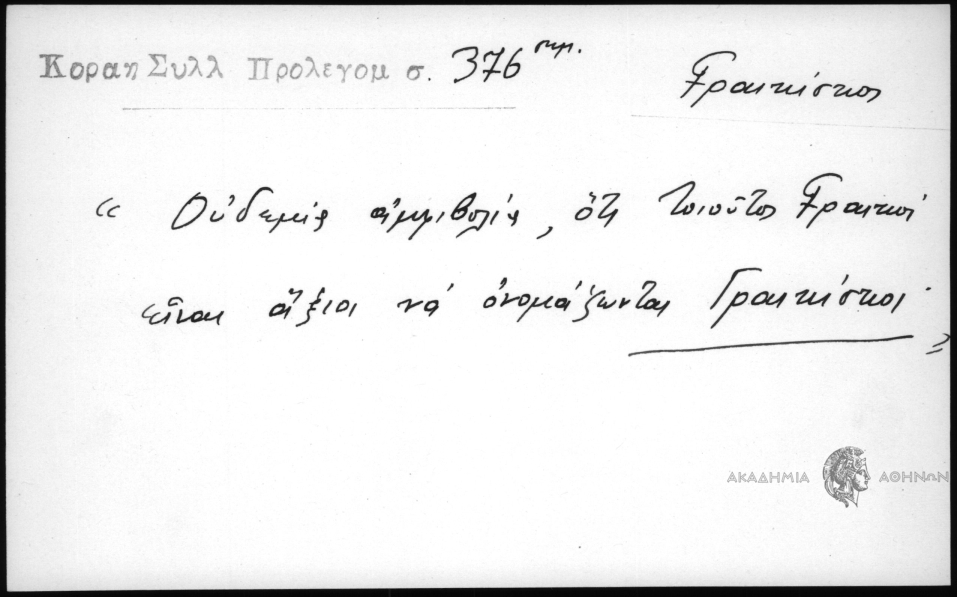 Κοραη Συλλ Προλεγομ σ. 376 σημ.
Γραικίσκος
« Οὐδεμία ἀμφιβολία, ὅτι τοιοῦτοι Γραικοί
εἶναι ἄξιοι νά ὀνομάζωνται Γραικίσκοι »
ΑΚΑΔΗΜΙΑ ΑΘΗΝΩΝ